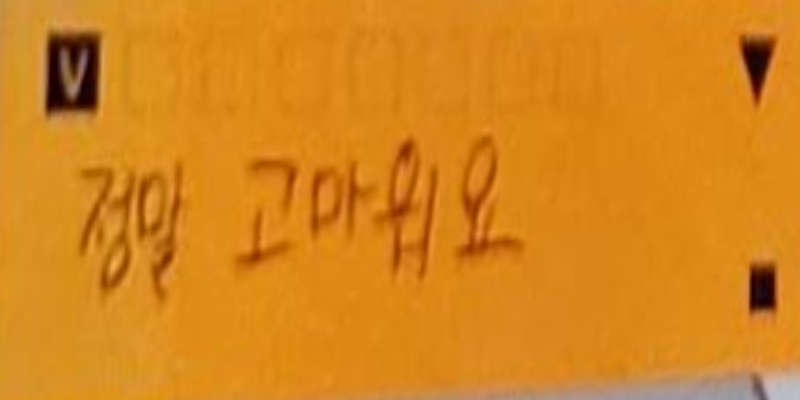 V
정말 고마웝요